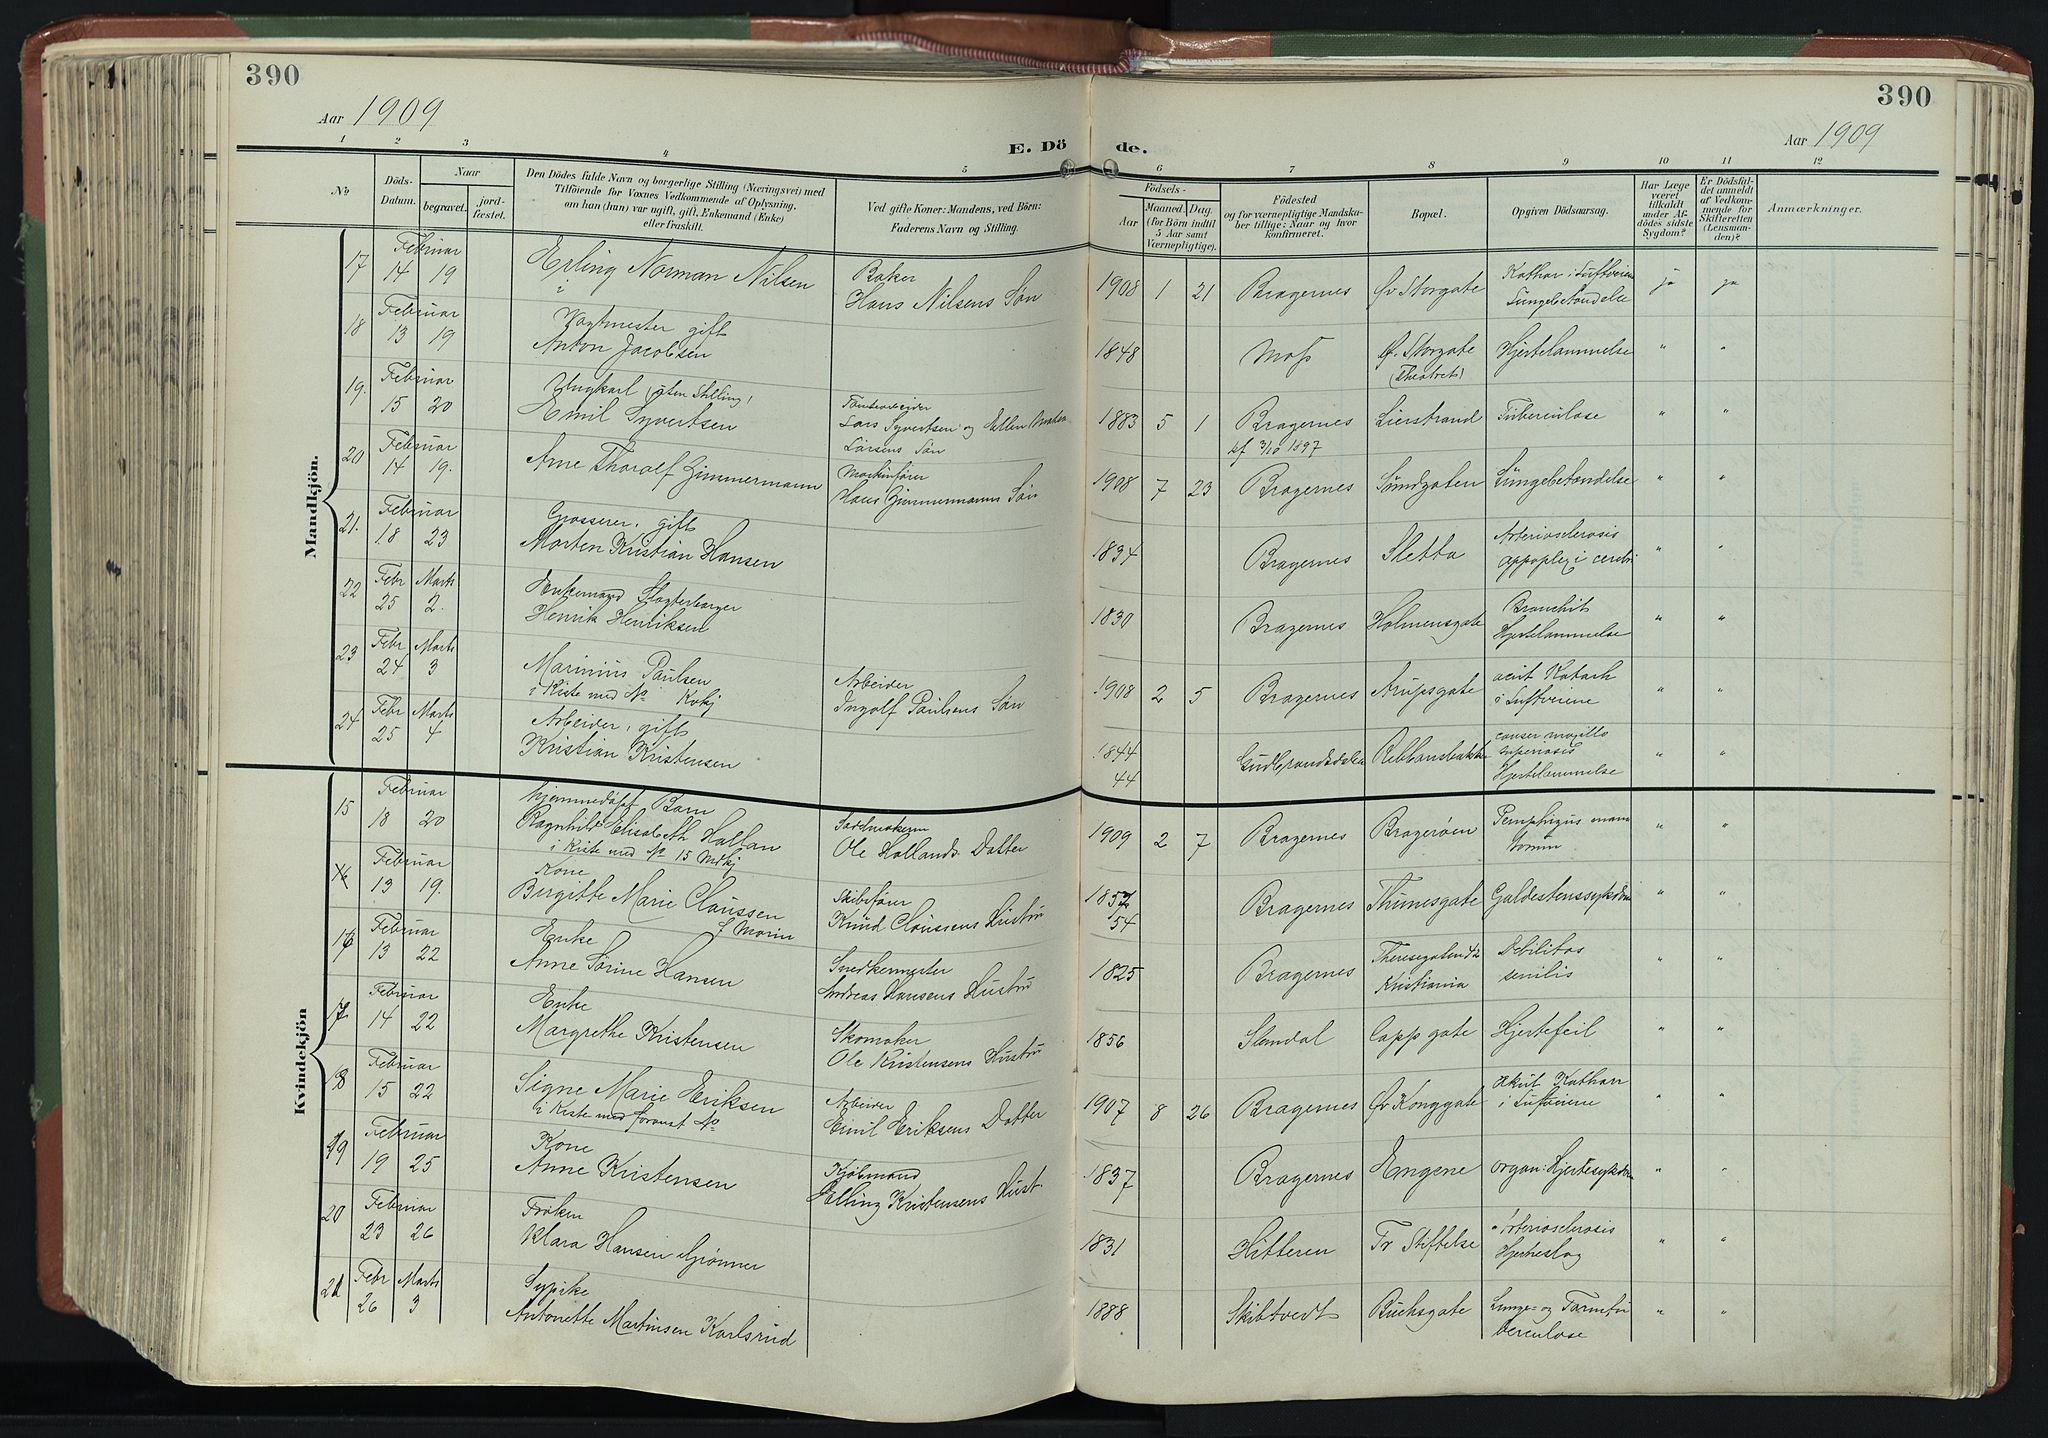 390
390
Aar 1909
Aar 1909
E. Dö
de.
1 2 3 4 5 6 7 8 9 10 11 12
No
Döds-
Datum.
Naar
begravet.
jord-
fæstet.
Den Dödes fulde Navn og borgerlige Stilling (Næringsvei) med
Tilföiende for Voxnes Vedkommende af Oplysning,
om han (hun) var ugift, gift, Enkemand (Enke)
eller fraskilt.
Ved gifte Koner: Mandens, ved Börn:
Faderens Navn og Stilling.
Födsels-
Aar
Maaned. Dag.
(for Börn indtil
5 Aar samt
Værnepligtige).
Födested
og for værnepligtige Mandska-
ber tillige: Naar og hvor
konfirmeret.
Bopæl.
Opgiven Dödsaarsag.
Har Læge
været
tilkaldt
under Af-
dödes sidste
Sygdom?
Er Dödsfal-
det anmeldt
af Vedkom-
mende for
Skifteretten
(Lensman-
den)?
Anmærkninger.
Mandkjön.
17 Februar 14 19 Erling Norman Nilsen Baker
Hans Nilsens Søn 1908 1 21 Bragernes Øv Storgate Kathar i Luftveiene
Lungebetændelse ja ja
18 Februar 13 19 Vagtmester gift
Anton Jacobsen 1848 Moss Ø. Storgate
(Theatret) Hjertelammelse " "
19. Februar 15 20 (uten Stilling)
Emil Syvertsen Lars Syvertsen og Ellen
Larsens Søn 1883 5 1 Bragernes
kf 3/10 1897 Lierstrand Tuberculose " "
20 Februar 14 19. Arne Thoralf Zimmermann Maskinfører
Hans Zimmermanns Søn 1908 7 23 Bragernes Sundgaten Lungebetændelse " "
21. Februar 18 23 Grosserer, gift
Morten Kristian Hansen 1834 Bragernes Sletta Arteriosclerosis
appoplexi cerebri " "
22 Febr 25 Marts 2. Enkemand Slagterborger
Henrik Henriksen 1830 Bragernes Holmensgate Bronchit
Hjertelammelse " "
23 Febr 24 Marts 3 Marinius Paulsen
i Kiste med No Kvkj Arbeider
Ingolf Paulsens Søn 1908 2 5 Bragernes Arupsgate acut Katarh
i Luftveiene " "
24 Febr 25 Marts 4 Arbeider, gift
Kristian Kristensen 1844
44 Gudbrandsdalen Hjertelammelse " "
Kvindekjön
15 Februar 18 20 hjemmedøpt Barn
Ragnhild Elisabeth Holtan
i Kiste med No 15 Mdkj Sadelmakerm
Ole Hollands Datter 1909 2 7 Bragernes Bragerøen Pemphigus " "
16 Februar 13 19. Kone
Birgitte Marie Claussen
f. Morin Skibsfører
Knud Claussens Hustru 1857
54 Bragernes Thunesgate Galdestenssykdom " "
16 Februar 13 22 Enke
Anne Sørine Hansen Snedkermester
Andreas Hansens Hustru 1825 Bragernes Theresegaten 42
Kristiania Debilitas
senilis " "
17 Februar 14 22 Enke
Margrethe Kristensen Skomaker
Ole Kristensens Hustru 1856 Slemdal Cappsgate Hjertefeil " "
18 Februar 15 22 Signe Marie Eriksen
i Kiste med forrust No Arbeider
Emil Eriksens Datter 1907 8 26 Bragernes Øv Konggate Akut Katharr
i Luftveiene " "
19 Februar 19 25 Kone
Anne Kristensen Kjøbmand
Elling Kristensens Hust. 1837 Bragernes Engene organ: Hjertesykdom " "
20 Februar 23 26 Frøken
Klara Hansen Grønner 1831 Hitteren Tr Stiftelse Arteriosclerosis
Hjerteslag " "
21 Febr 26 Marts 3 Sypike
Antonette Martinsen Karlsrud 1888 Skibtvedt Buchsgate Lunge- og Tarmtu
berculose " "